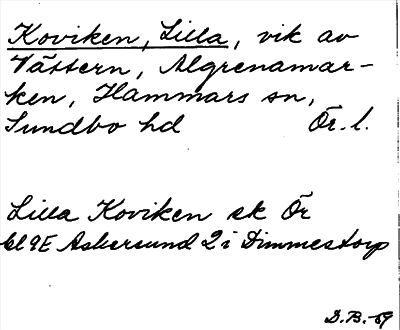 Koviken, Lilla, vik av
Vättern, Algrenamar-
ken, Hammars sn,
Sundbo hd Ör. l.
Lilla Koviken ek Ör
bl 9E Askersund 2 i Dimmestorp
D.B.-69